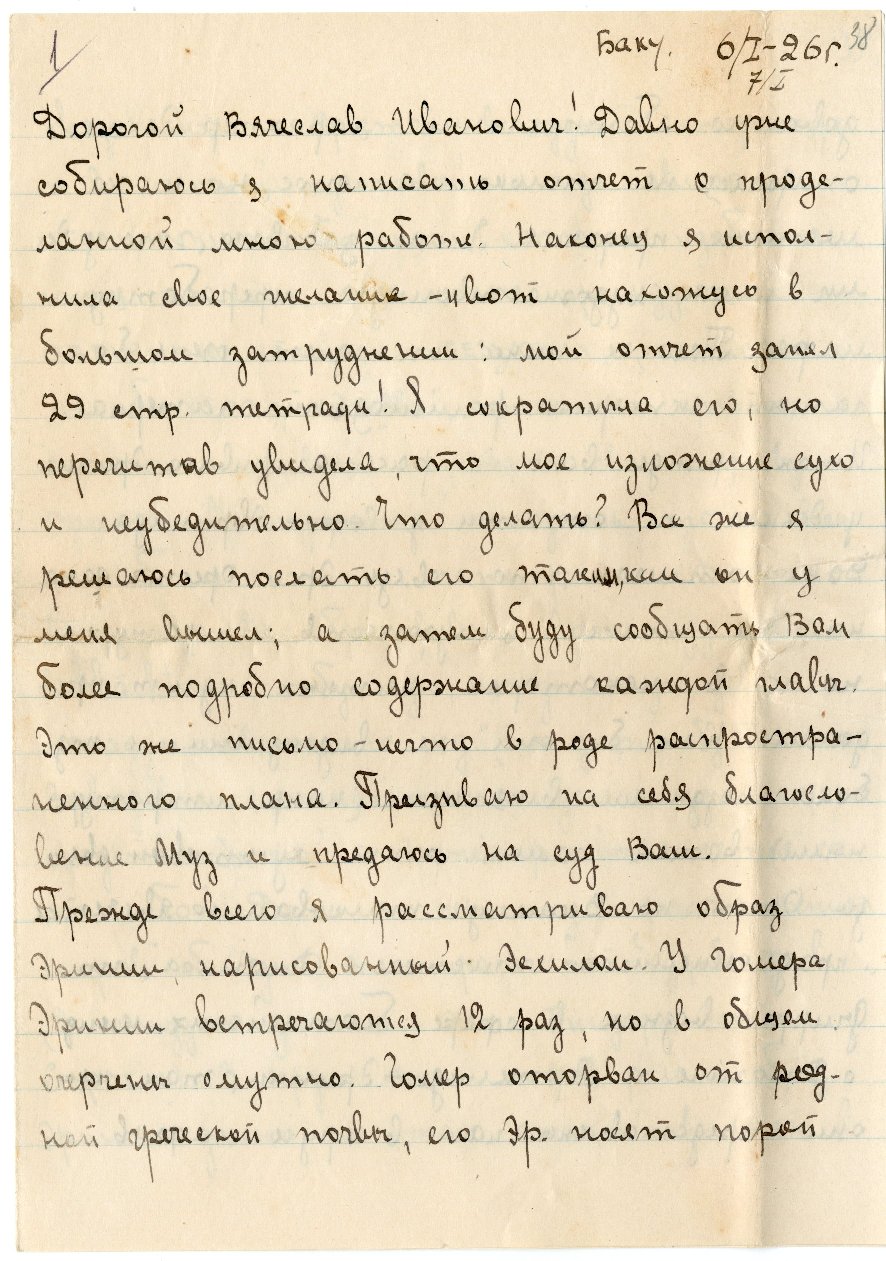 1
38
Баку. 6/I-26 г.
7/I
Дорогой Вячеслав Иванович! Давно уже
собираюсь я написать отчет о проде-
ланной мною работе. Наконец я испол-
нила свое желание - и вот нахожусь в
большом затруднении: мой отчет занял
29 стр. тетради! Я сократила его, но
перечитав увидела, что мое изложение сухо
и неубедительно. Что делать? Все же я
решаюсь послать его таким, каким он у
меня вышел; а затем буду сообщать Вам
более подробно содержание каждой главы.
Это же письмо - нечто в роде распростра-
ненного плана. Призываю на себя благосло-
вение Муз и предаюсь на суд Ваш.
Прежде всего я рассматриваю образ
Эринии, нарисованный Эсхилом. У Гомера
Эринии встречаются 12 раз, но в общем
очерчены смутно. Гомер оторван от род-
ной греческой почвы, его Эр. носят порой